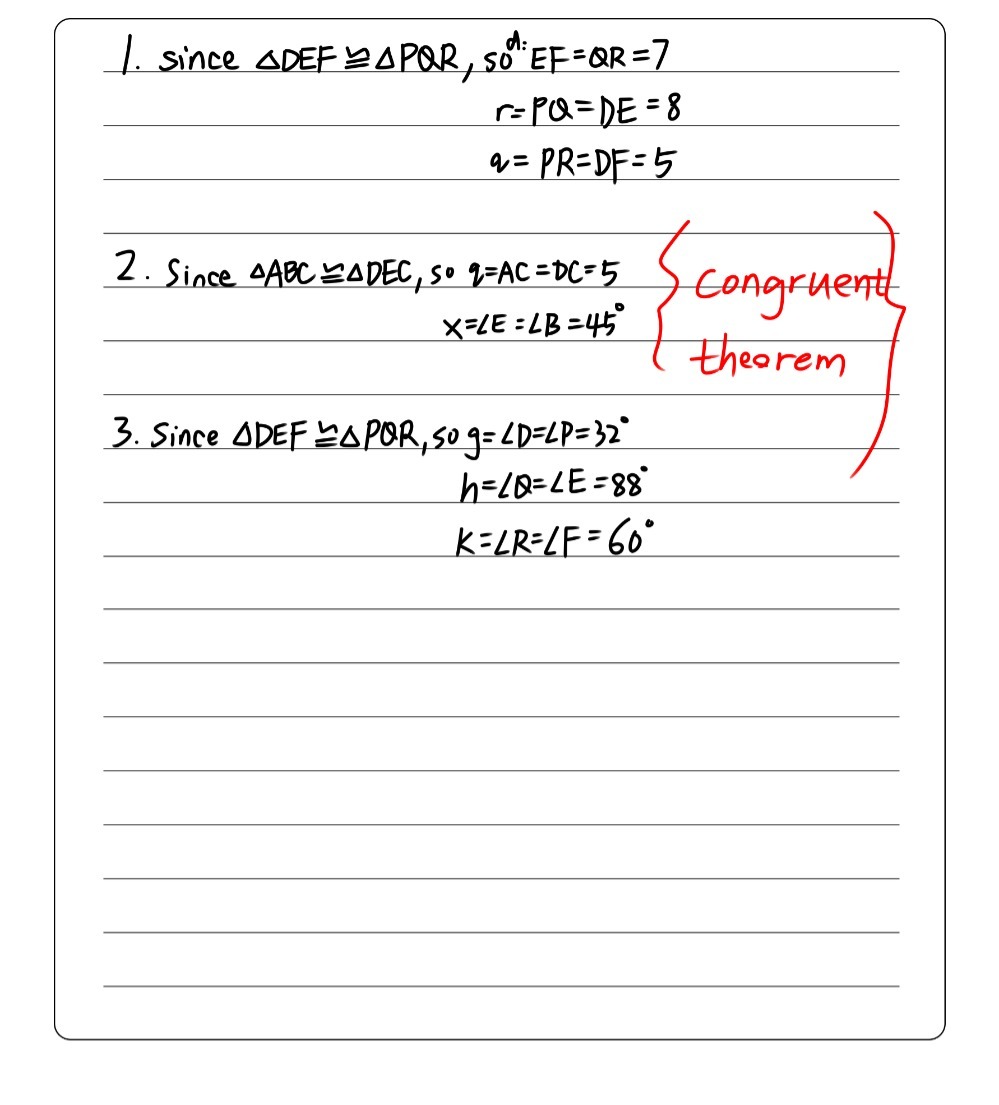 1. since △DEF≌△PQR, so d: EF=QR=7
r=PQ=DE=8
q= PR=DF=5
2. Since △ABC≌△DEC, so q=AC=DC=5
x=∠E=∠B=45°
congruent
theorem
3. Since △DEF≌△PQR, so g=∠D=∠P=32°
h=∠Q=∠E=88°
K=∠R=∠F=60°